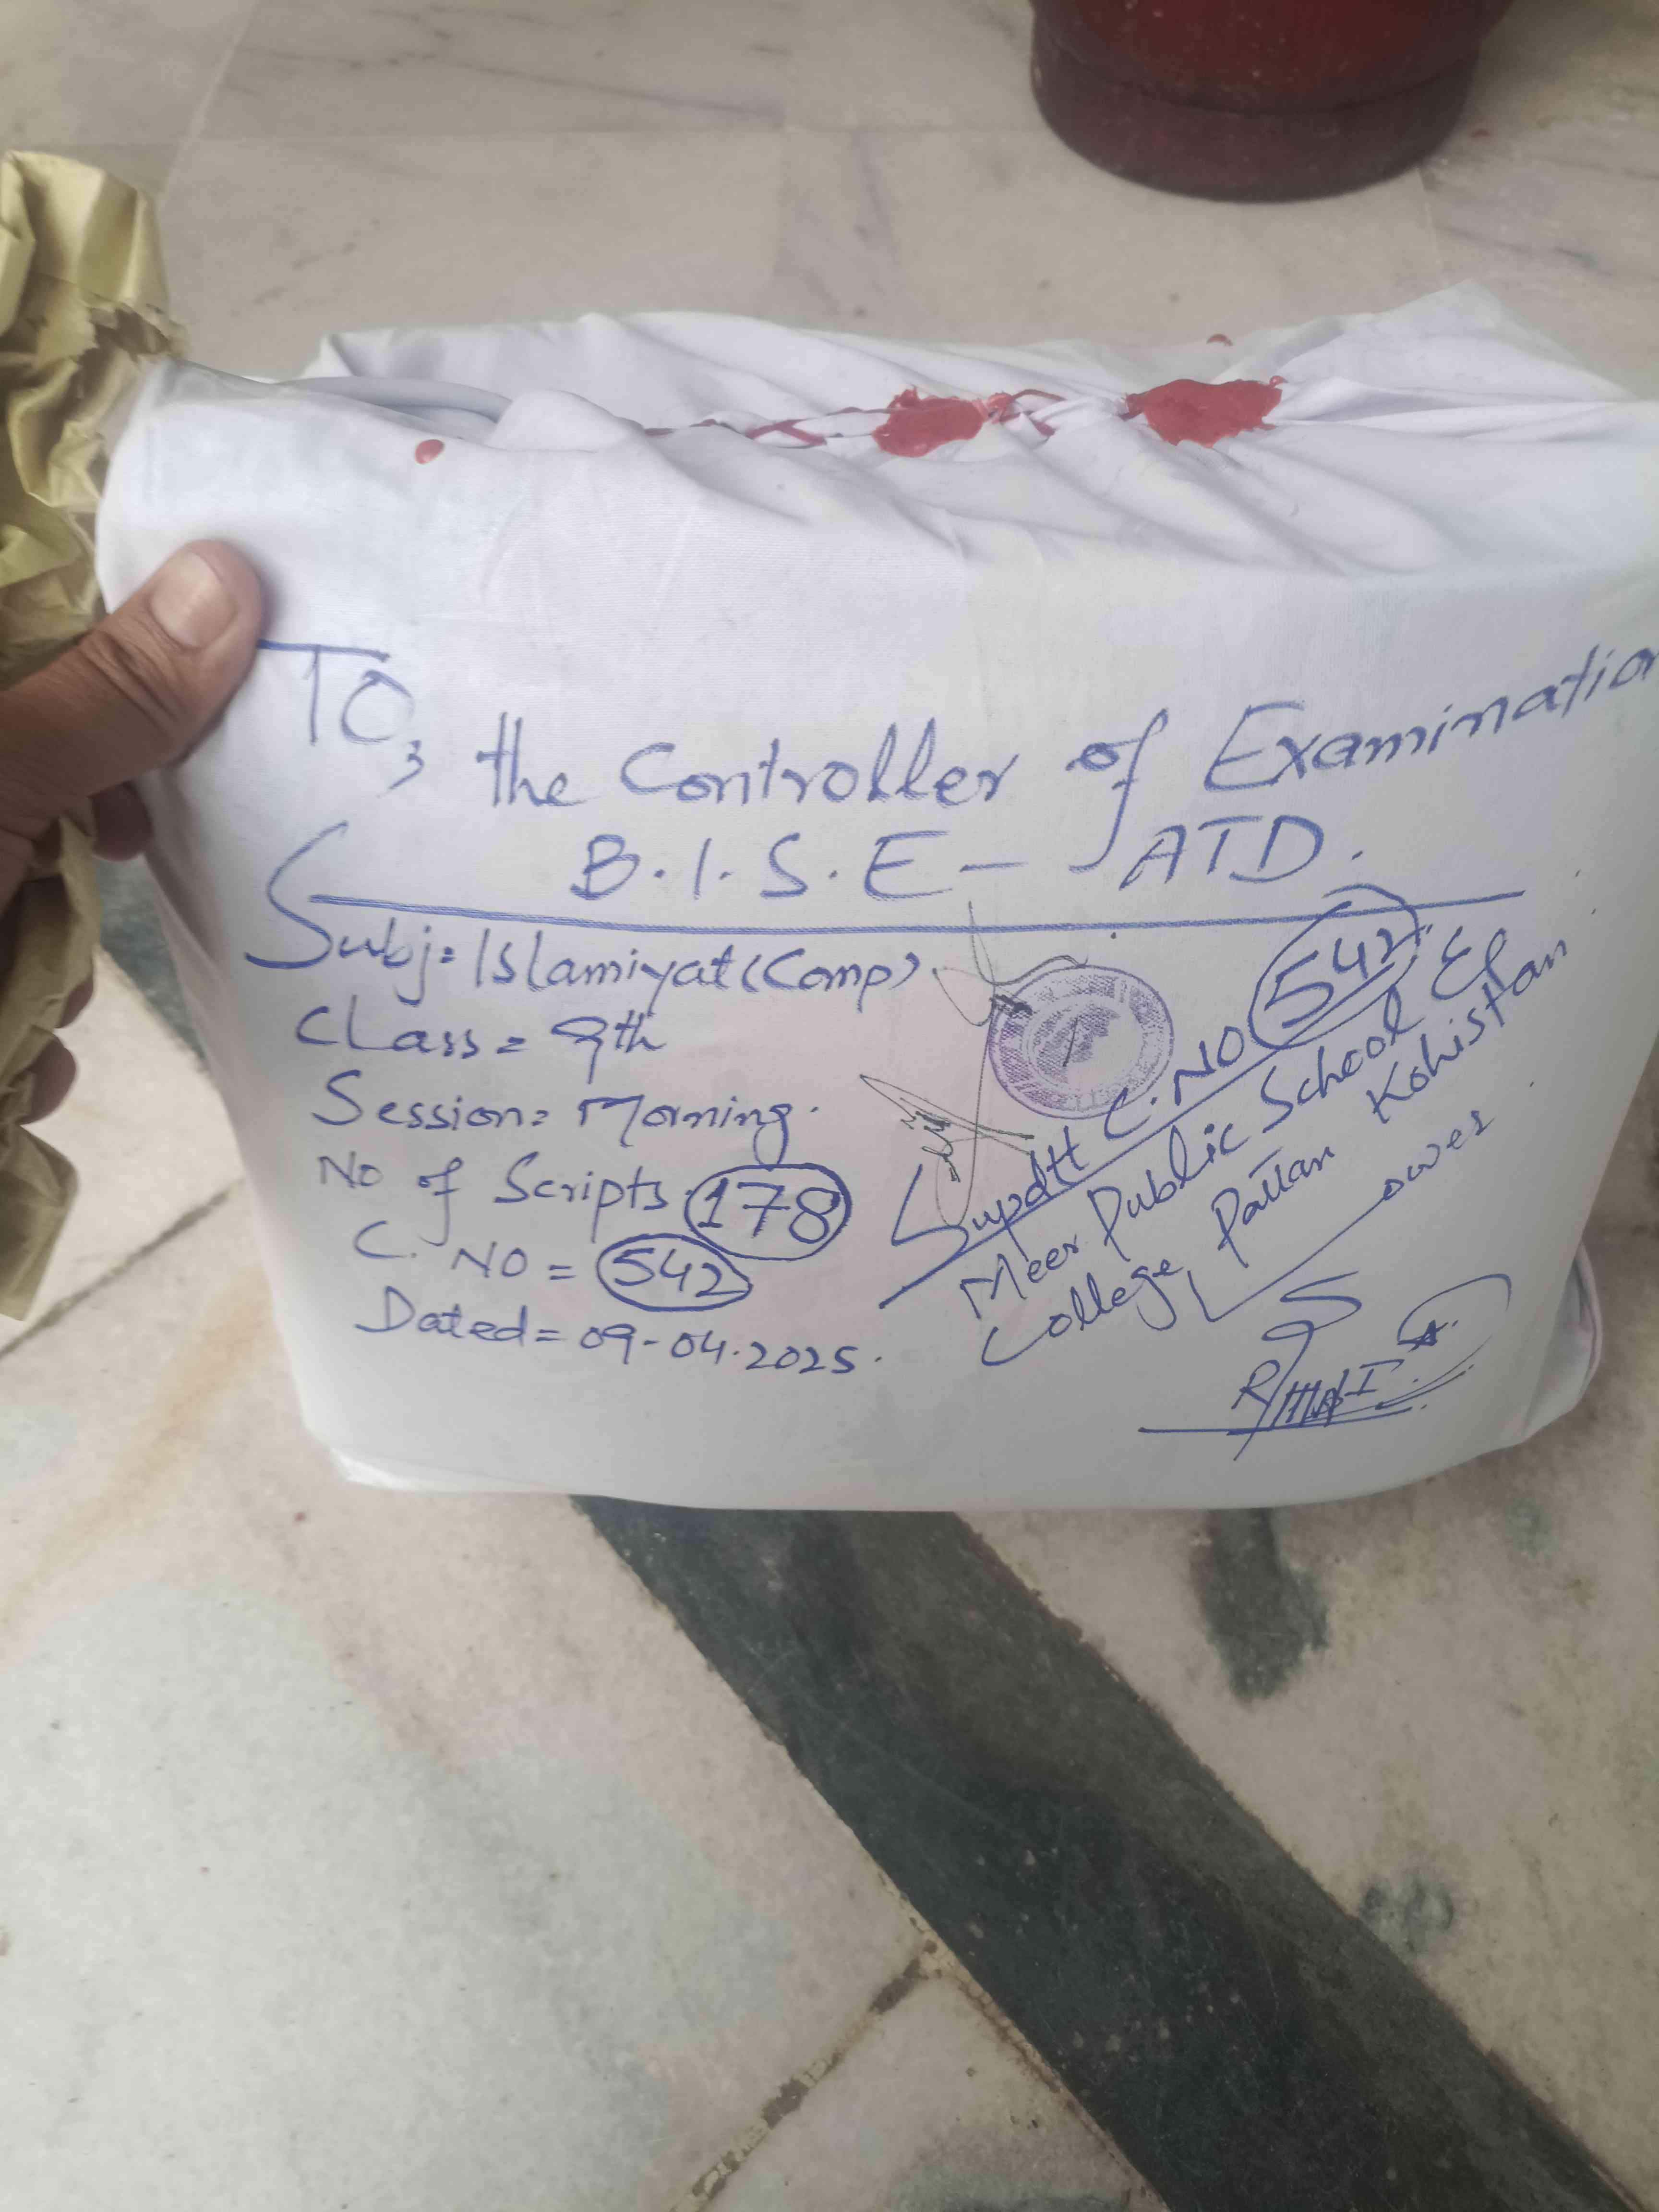 TO, the Controller of Examination
B.I.S.E - ATD.
Subj: Islamiyat (Comp)
Class = 9th
Session: Morning.
No of Scripts 178
C. NO = 542
Dated = 09-04.2025.
Supdtt C.NO 542
Meer Public School &
College Pattan Kohistan
Lower